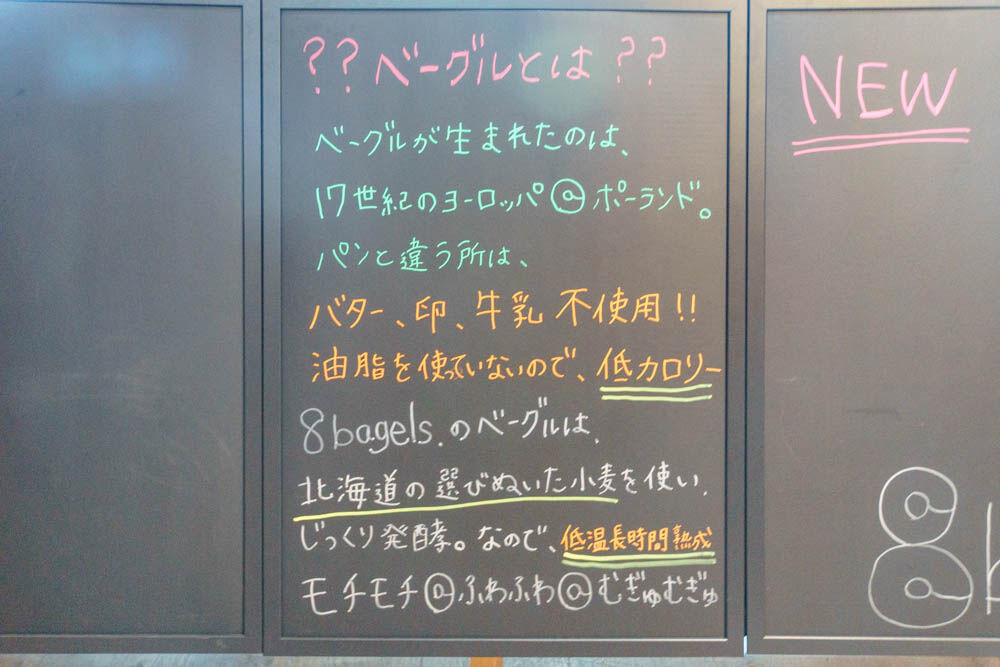 ??ベーグルとは??
ベーグルが生まれたのは、
17世紀のヨーロッパ@ポーランド。
パンと違う所は、
バター、卵、牛乳 不使用!!
油脂を使っていないので、低カロリー
8bagels.のベーグルは、
北海道の選びぬいた小麦を使い、
じっくり発酵。なので、低温長時間熟成
モチモチ@ふわふわ@むぎゅむぎゅ
NEW